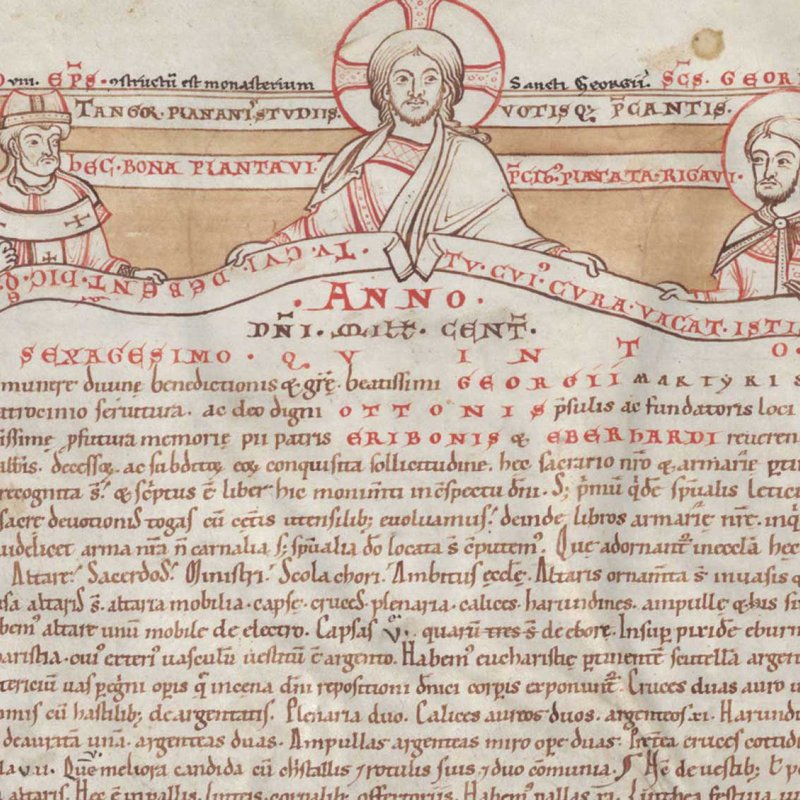 viii. EP̄S. ꝯstructū est monasterium Sancti Georgii. SC̄S. GEOR
TANGOR PLANANI STVDIIS. VOTISQ; P̄CANTIS.
hEC BONA PLANTAVI P̄CIB; PLANTATA RIGAVI.
TV CVI DEBENT DICO
TV CVI CVRA VACAT ISTI
ANNO.
DN̄I. MILL. CENT̄.
SEXAGESIMO. QVINTO.
munere divinę benedictionis & grē. beatissimi GEORGII MARTYRIS
atrocinio servitura. ac deo digni OTTONIS p̄sulis ac fundatoris loci
issimę p̄futura memorię pii patris ERIBONIS & EBERHARDI reveren
altis. ac subditoꝝ eoꝝ conquisita sollicitudine. hec sacrario nr̄o & armarię
recognita s̄. & sc̄ptus ē liber hic in ꝯspectu dn̄i. S; p̄mū q̄dē sp̄ualis
sacrę devotionis togas cū cęt̄is utensilib; evoluamus. deinde libros armarię nr̄ę.
videlicet arma nr̄a n̄ carnalia s; sp̄ualia do locata s̄ ꝯputem᾽. Que adornant᾽ in ęccla hec
Altare. Sacerdos. Ministri. Scola chori. Ambitus ęccle. Altaris ornam̄ta s̄
altaris s̄. altaria mobilia. capsę. cruces. plenaria. calices. harundines. ampullę & his
bem᾽ altare unū mobile de electro. Capsas V. quarū tres s̄ de ebore. Insup pixidē eburn
aristia. vasculū ē argento. Habem᾽ eucharistię p̄tinentē scutellā argen
tercium vas p̄egni op̄is q̄ in cena dn̄i repositioni dn̄ici corp̄is exponunt᾽. Cruces duas auro
omis cū hastilib; deargentatis. Plenaria duo. Calices aureos duos. argenteos xi. Harund
deaurata unā. argenteas duas. Ampullas argenteas miro ope duas. cruces cottidi
la vii. Quę meliora candida cū christallis & rotulis suis & duo cōmunia. de vestib;
altaris. Hec ē in pallis. linteis. cortinalib; offertoriis. Habem᾽ pallas xi. Linthea festiva